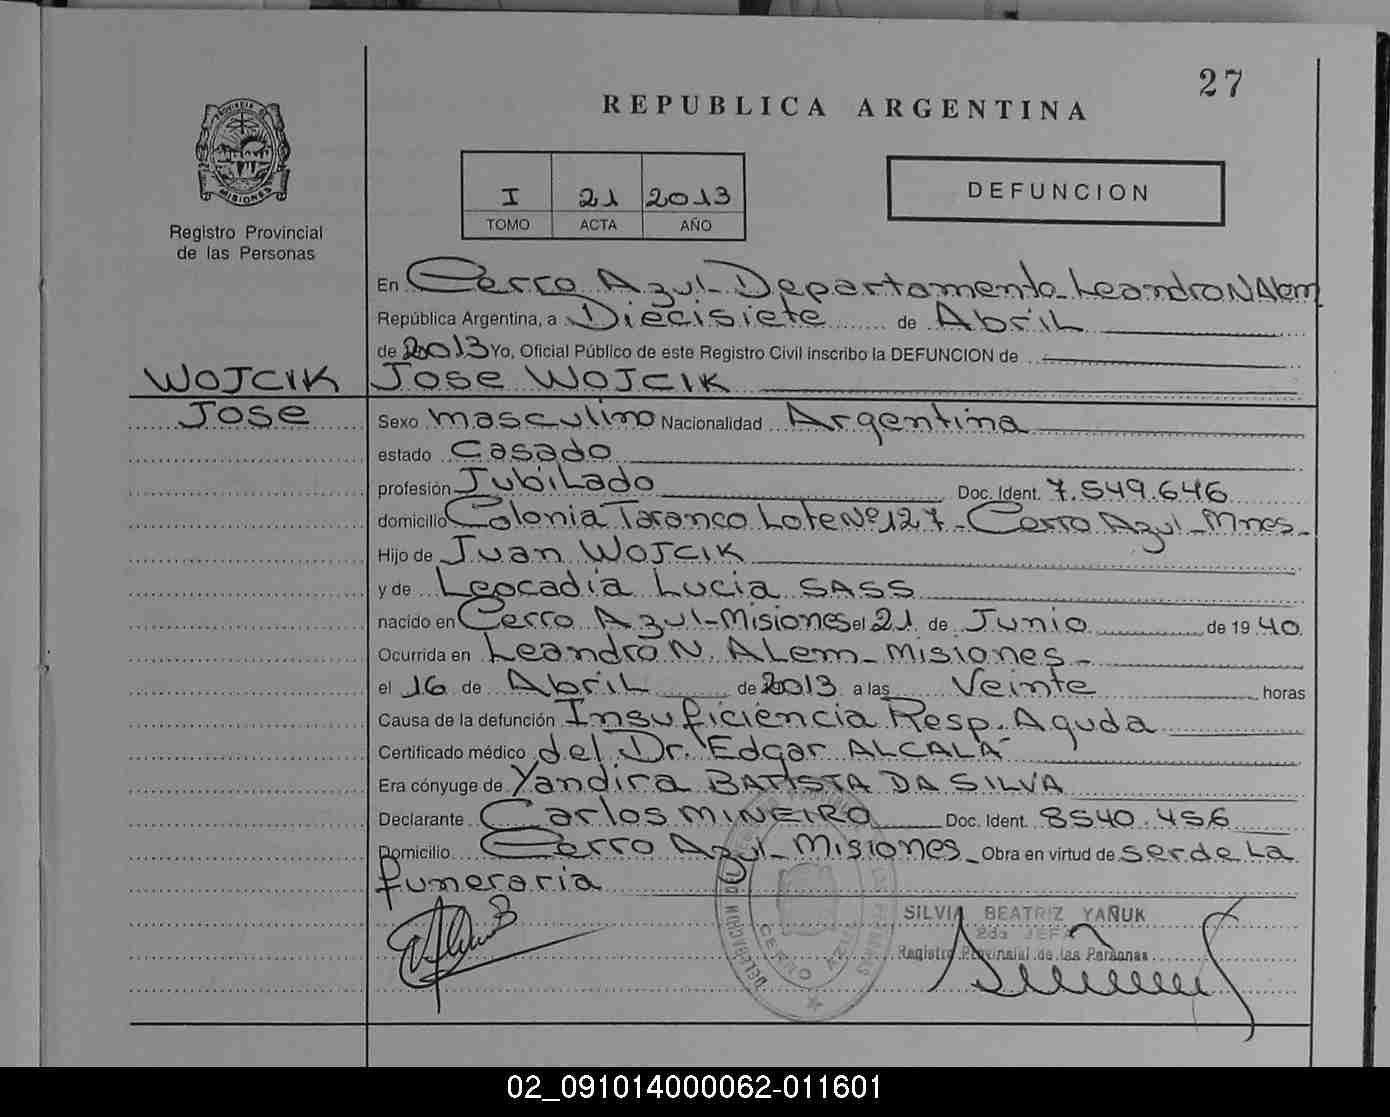 27
REPUBLICA ARGENTINA
PROVINCIA
MISIONES
Registro Provincial
de las Personas
I 21 2013
TOMO ACTA AÑO
DEFUNCION
En Cerro Azul- Departamento Leandro N Alem
República Argentina, a Diecisiete de Abril
de 2013 Yo, Oficial Público de este Registro Civil inscribo la DEFUNCION de
WOJCIK JOSE WOJCIK
JOSE
Sexo masculino Nacionalidad Argentina
estado Casado
profesión Jubilado Doc. Ident. 7.549.646
domicilio Colonia Taranco Lote Nº 127 - Cerro Azul - Mnes -
Hijo de Juan WOJCIK
y de Leocadia Lucia SASS
nacido en Cerro Azul - Misiones el 21 de Junio de 19 40
Ocurrida en Leandro N. ALem - Misiones -
el 16 de Abril de 2013 a las Veinte horas
Causa de la defunción Insuficiencia Resp. Aguda
Certificado médico del Dr. Edgar ALCALÁ
Era cónyuge de Yandira BATISTA DA SILVA
Declarante Carlos MINEIRO Doc. Ident. 8540.456
Domicilio Cerro Azul - Misiones - Obra en virtud de ser de La
funeraria
SILVIA BEATRIZ YAÑUK
2da JEFA
Registro Provincial de las Personas
DELEGACION
CERRO AZUL
02_091014000062-011601